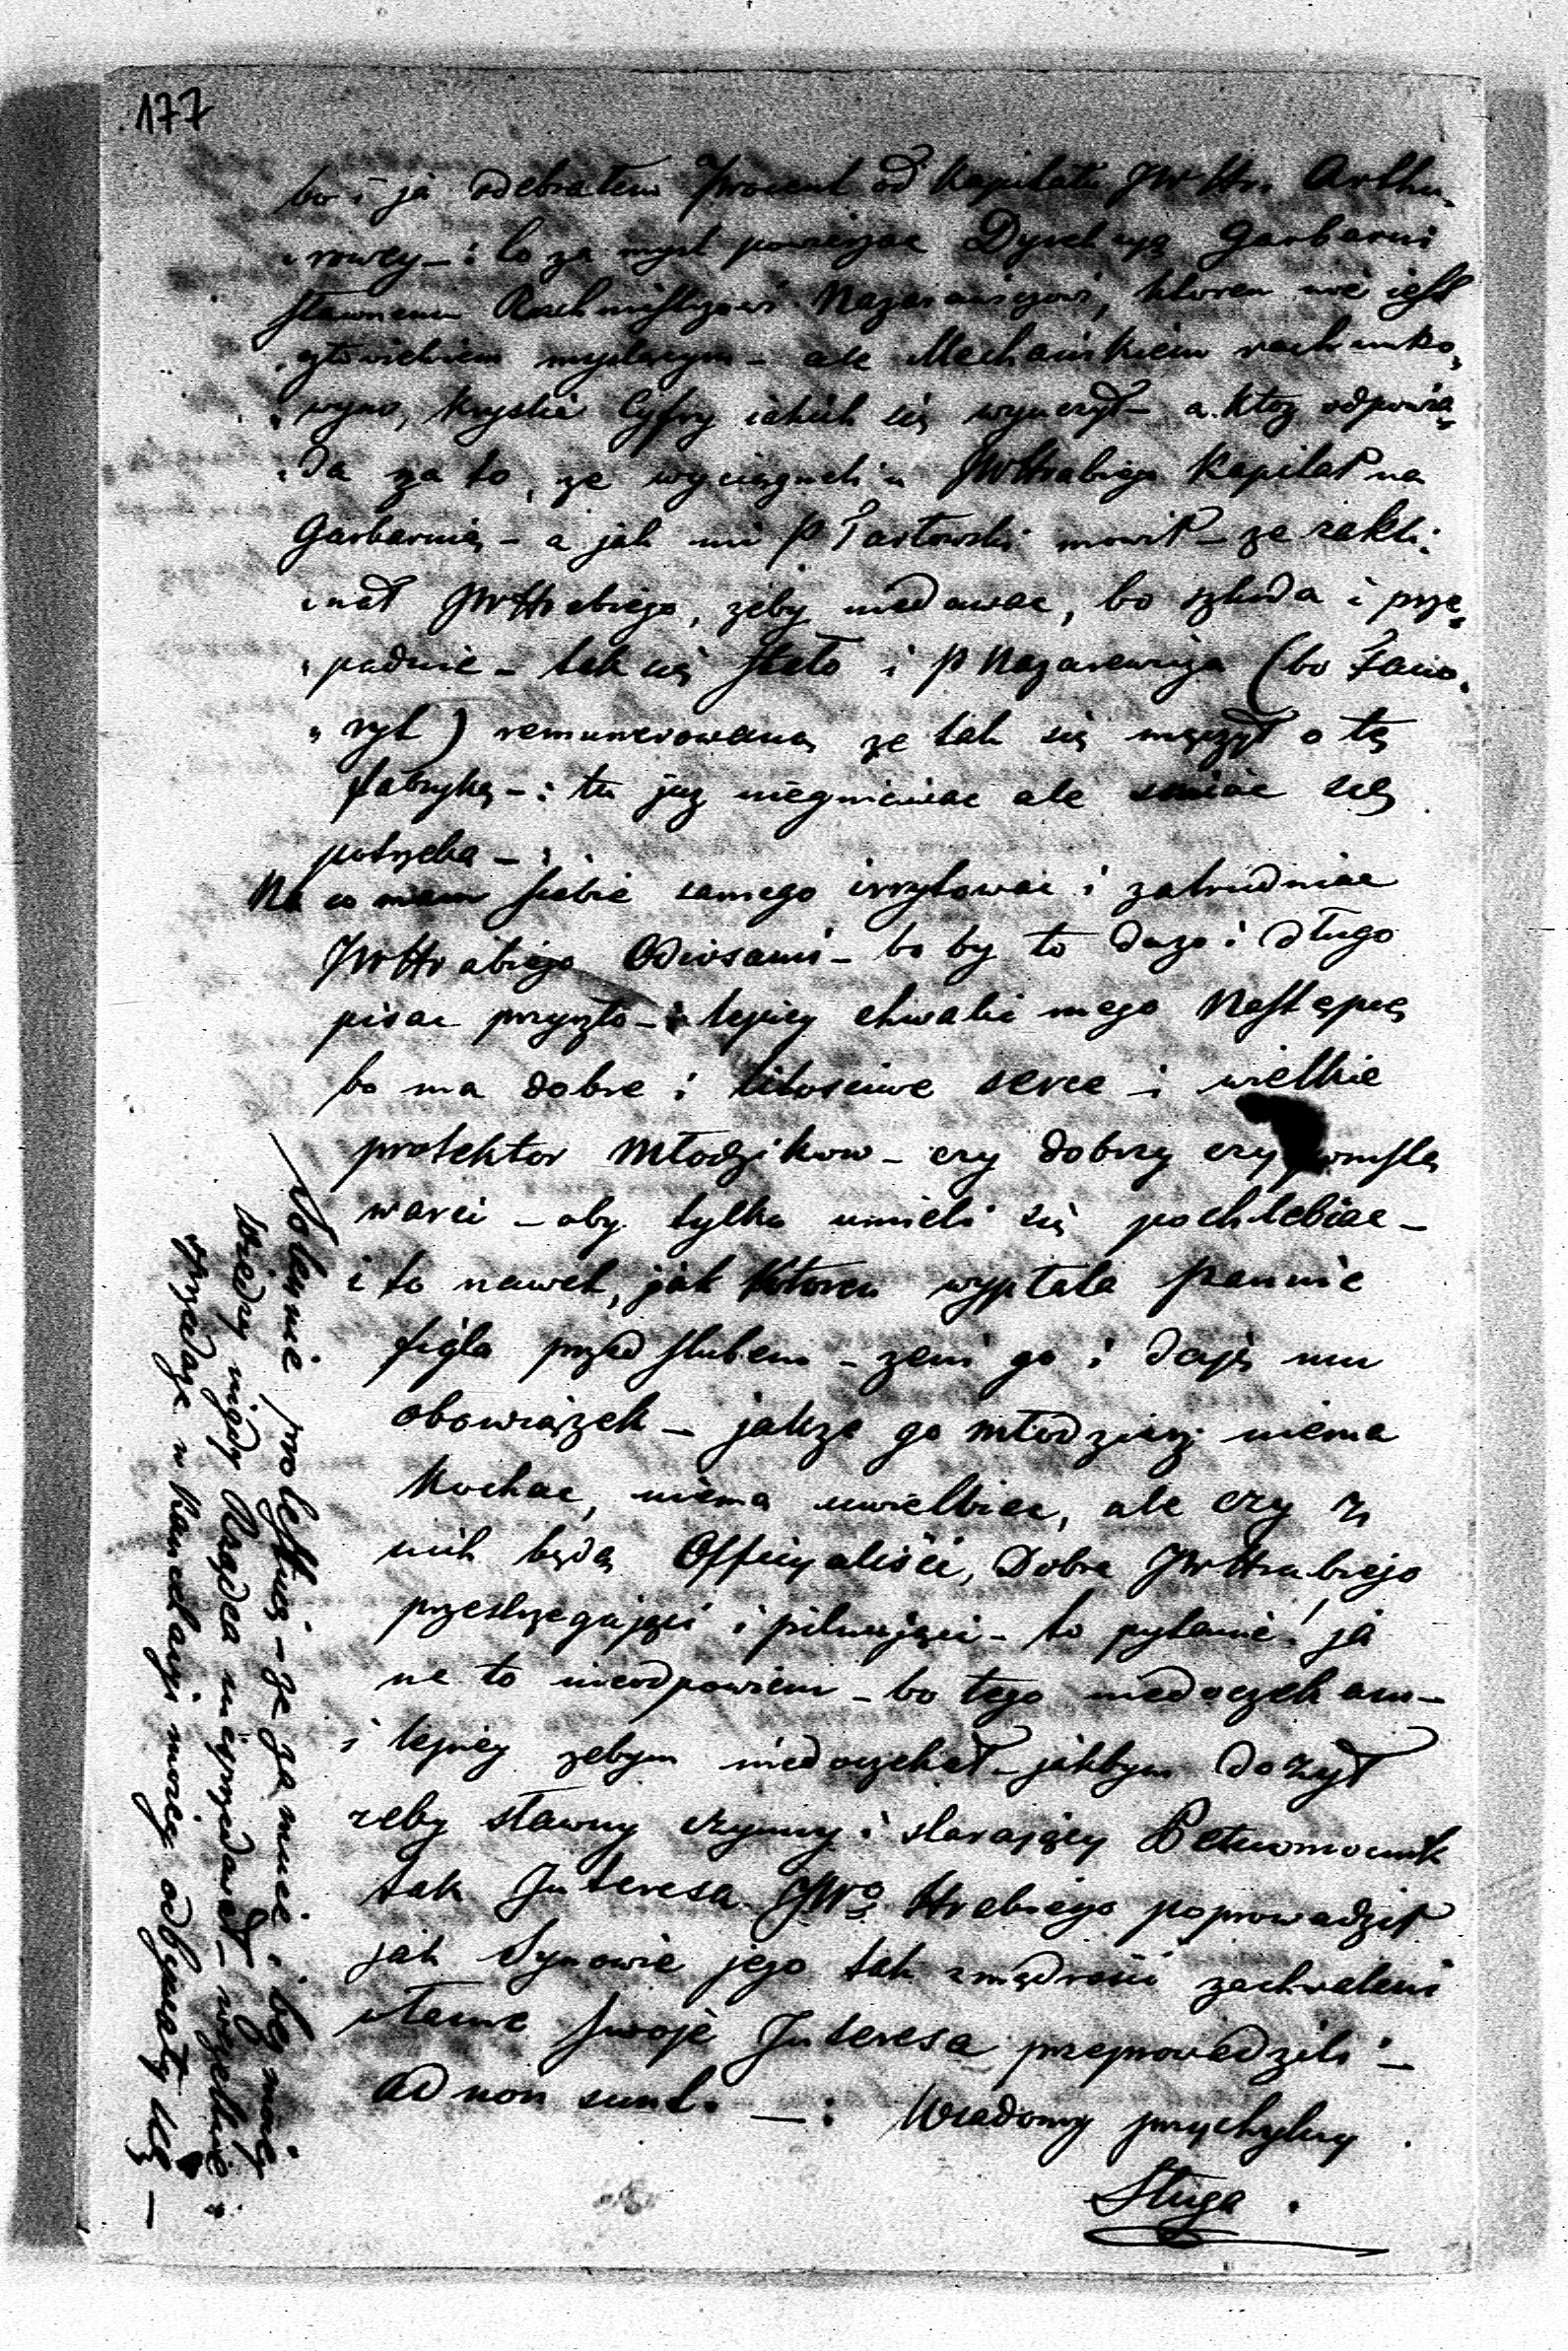 177
bo i ja odebrałem Procent od Kapitału JWHr. Arthu„
„rowey – : co za mysl powierzac Dyrekcyą Garbarni
sławnemu Rachmistrzowi Nazarewiczowi, ktoren nie iest
człowiekiem myslącym – ale Mechanikiem rachunko„
„wym, kryslić Cyfry iakich się wyuczył – a ktoz odpowia„
„da za to, ze wyciągneli u JWHrabiego Kapitał na
Garbarnią – a jak mi P mowił – ze rekli„
„nał JWHrabiego, zeby niedawac, bo szkoda i prze„
„padnie – tak się stało i P Nazarewicza (bo Fawo„
„ryt) remunerowaną ze tak się męczył o tę
fabrykę – : tu juz niegniewac ale smiac się
potrzeba – :
Na co mam siebie samego irrytowac i zatrudniac
JWHrabiego – bo by to duzo i długo
pisac przyszło – : lepiey chwalic mego Następcę
bo ma dobre i litosciwe serce – i wielkie
protektor Młodzikow – czy dobrzy czy
warci – aby tylko umieli się pochlebiac –
i to nawet, jak ktoren wypłata Pannie
figla przed slubem – zeni go i daje mu
obowiązek – jakze go młodziesz niema
kochac, niema uwielbiac, ale czy z
nich będą Officyaliści, Dobra JWHrabiego
przestrzegający i pilnujący – to pytanie! ja
na to nieodpowiem – bo tego niedoczekam –
i lepiey zebym niedoczekał – jakbym dozył
zeby sławny czynny i starający Pełnomocnik
tak Interesa JWo Hrabiego poprowadził
jak Synowie jego tak z mądrości zachwaleni
własne swoje Interesa przeprowadzili –
Ad non sunt. – : Wiadomy przychylny
Sługa.
Solennie protestuię – ze za mnie i bez moiey
wiedzy nigdy Rządca niesprzedawał – wszelkie
sprzedaze w Kancellaryi moiey odbywały się –